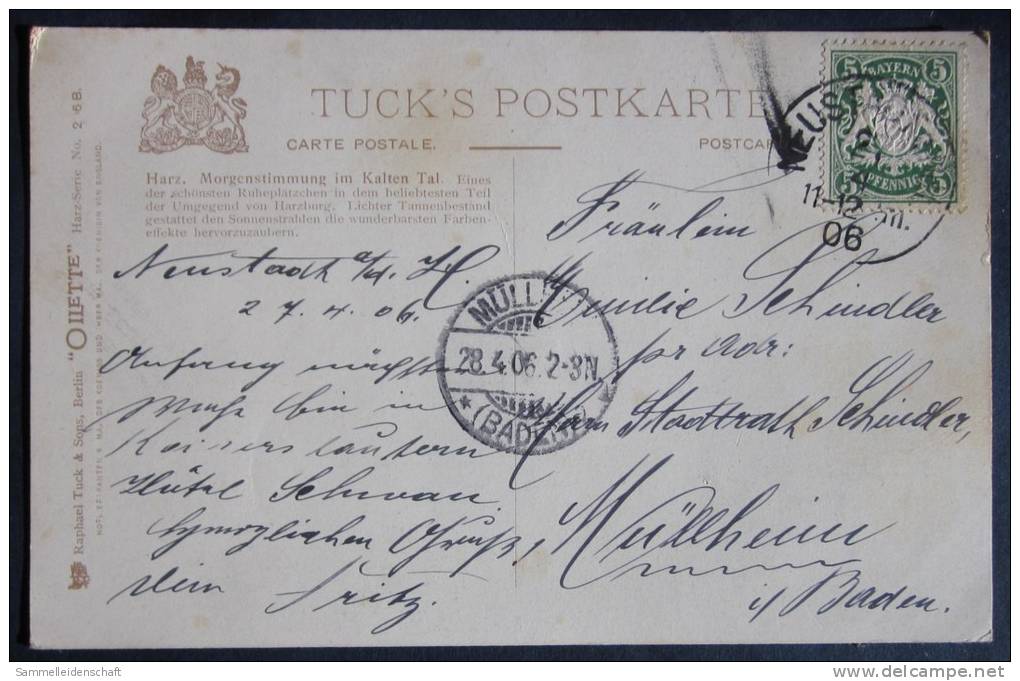 TUCK'S POSTKARTE
CARTE POSTALE.
POSTCAR
Harz. Morgenstimmung im Kalten Tal. Eines
der schönsten Ruheplätzchen in dem beliebtesten Teil
der Umgegend von Harzburg. Lichter Tannenbestand
gestattet den Sonnenstrahlen die wunderbarsten Farben-
effekte hervorzuzaubern.
Raphael Tuck & Sons, Berlin "OILETTE" Harz-Serie No. 2 6 B.
BAYERN
5 5
5 PFENNIG 5
NEUST
11-12
06
MÜLL
28.4.06. 2-3N.
* (BADEN) *
Neustadt a/d. H.
27.4.06.
Anfang nächster
Woche bin in
Kaiserslautern
Hôtel Schwan
Herzlichen Gruß,
dein Fritz.
Fräulein
Emilie Schindler
pr Adr:
Herrn Stadtrath Schindler,
Müllheim
i/ Baden.
Sammelleidenschaft
www.delcampe.net